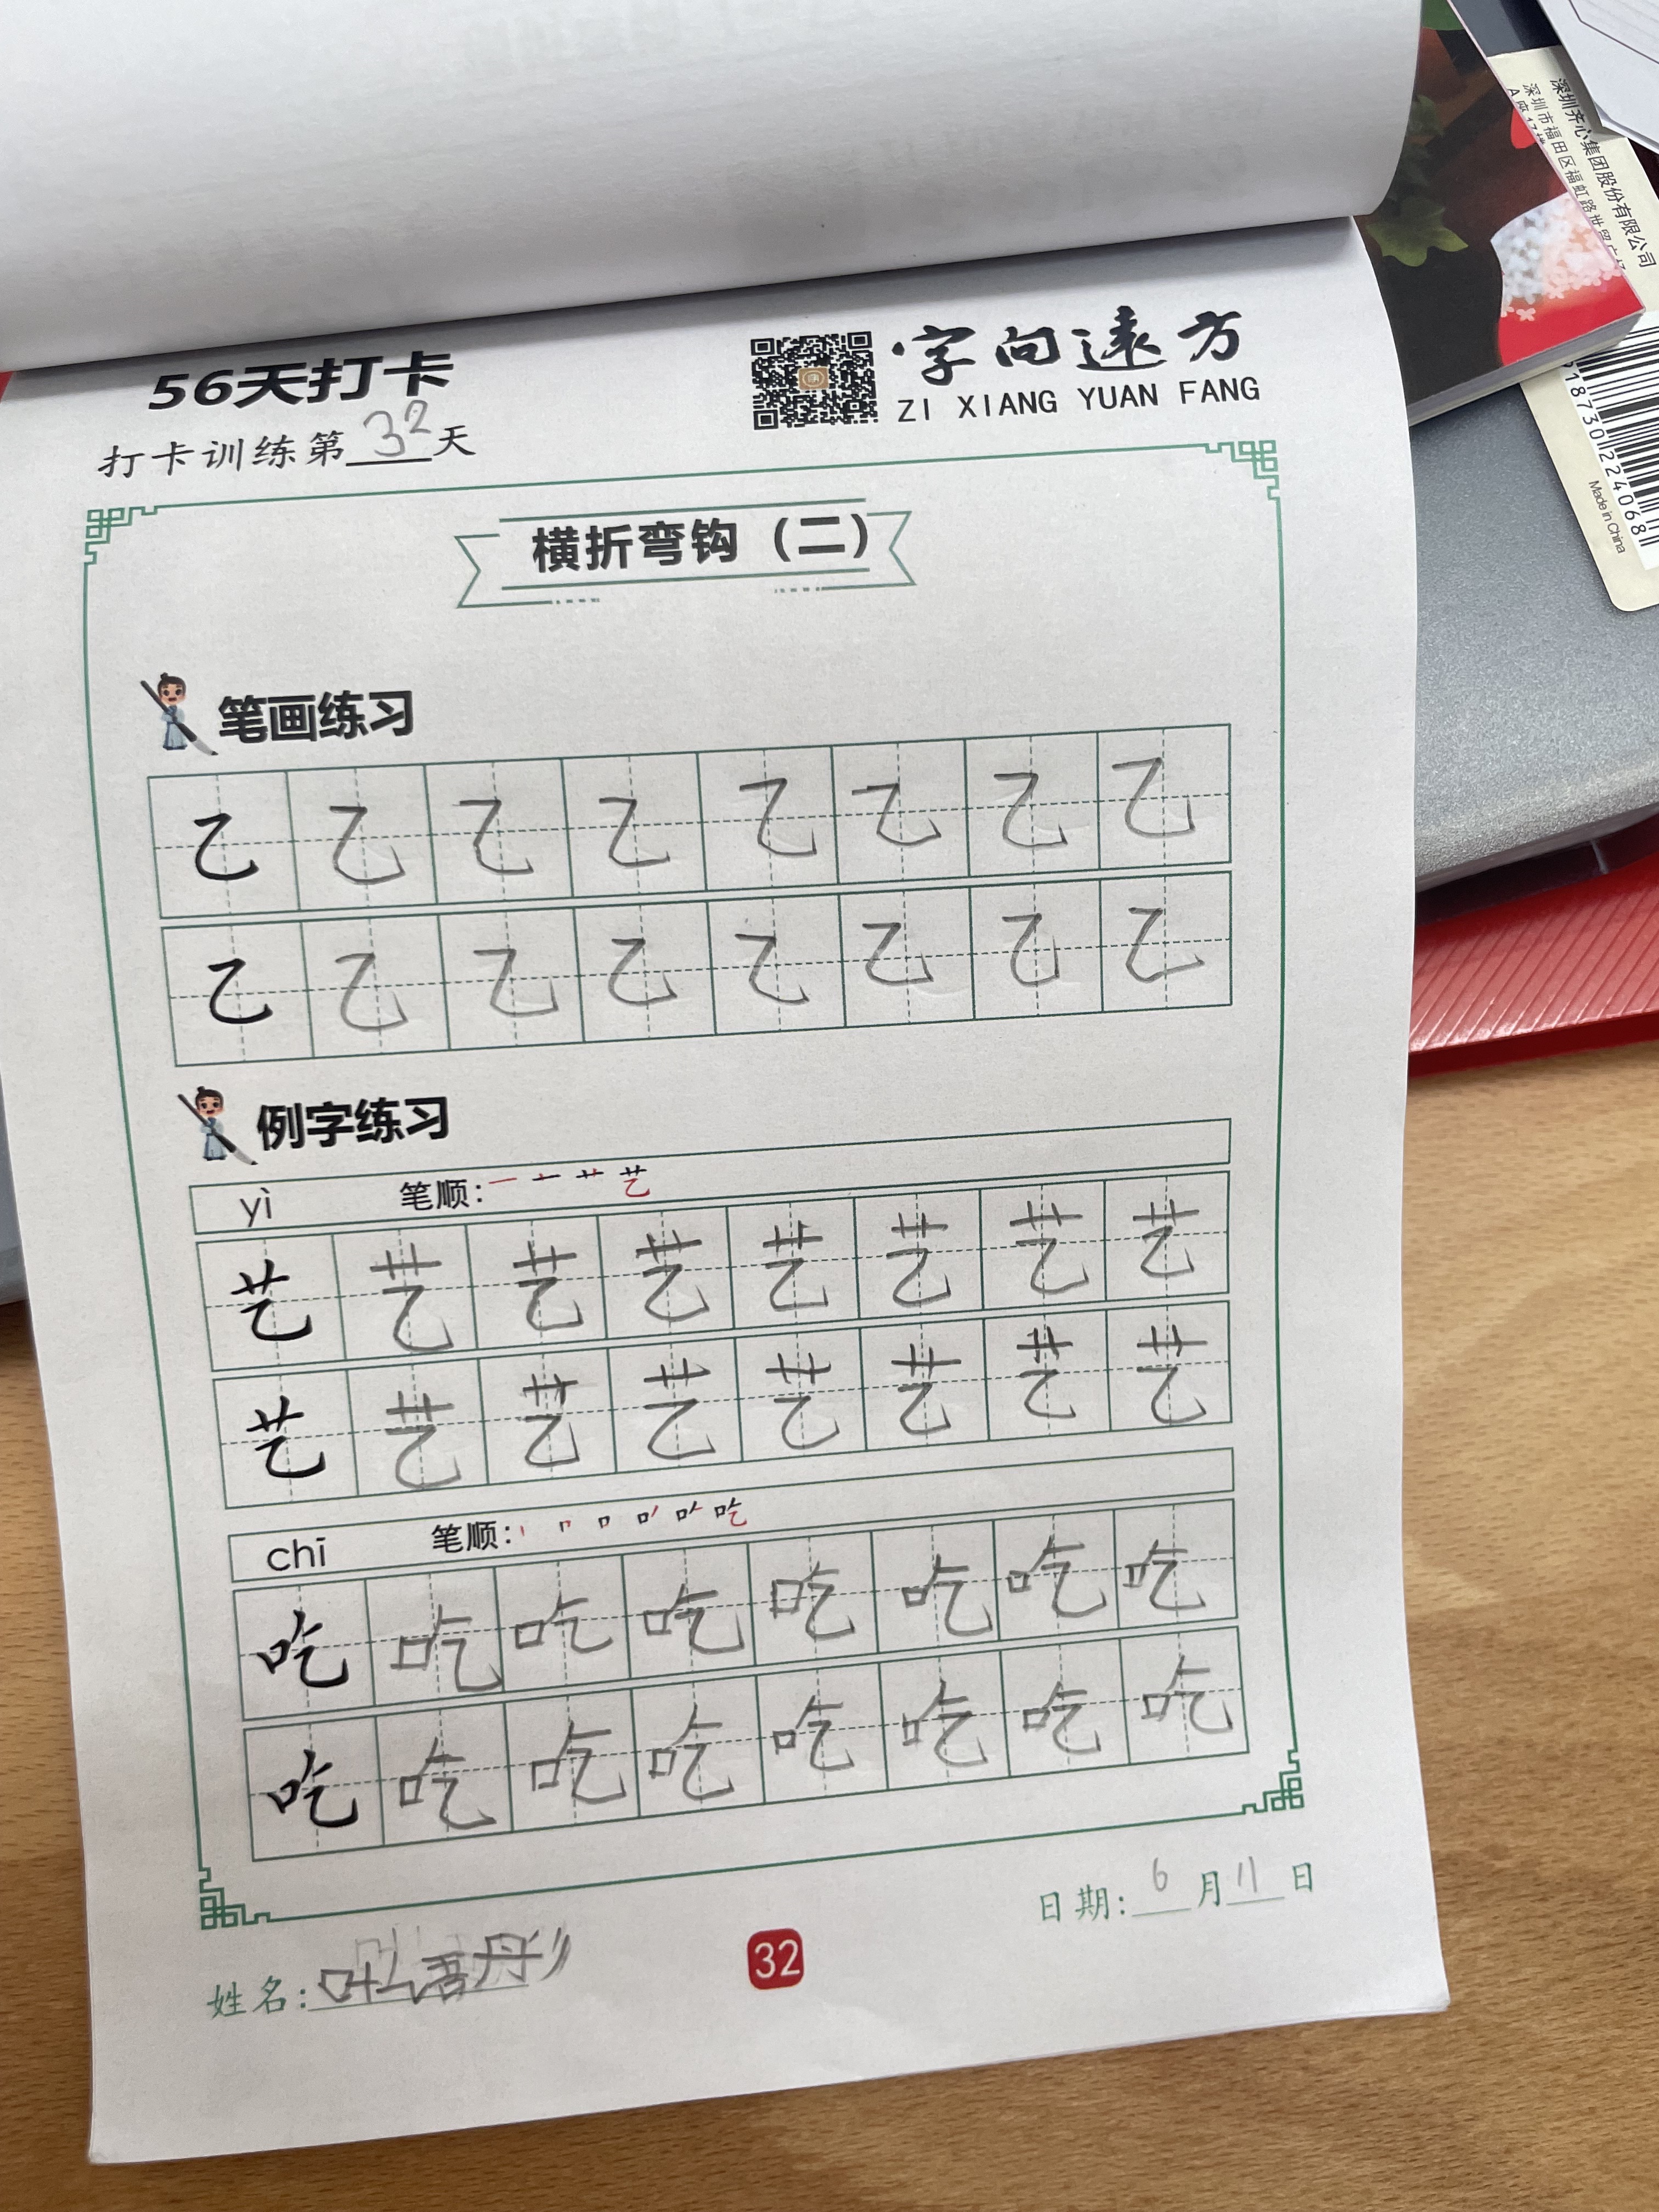 56天打卡
打卡训练第32天
字向远方
ZI XIANG YUAN FANG
横折弯钩（二）
笔画练习
乙 乙 乙 乙 乙 乙 乙 乙
乙 乙 乙 乙 乙 乙 乙 乙
例字练习
yì 笔顺：一 十 艹 艺
艺 艺 艺 艺 艺 艺 艺 艺
艺 艺 艺 艺 艺 艺 艺 艺
chī 笔顺：丨 𠃍 口 吃
吃 吃 吃 吃 吃 吃 吃 吃
吃 吃 吃 吃 吃 吃 吃 吃
日期：6月11日
姓名：叶语彤
32
深圳齐心集团股份有限公司
深圳市福田区福虹路世贸广场
A座17楼
18730224068
Made in China